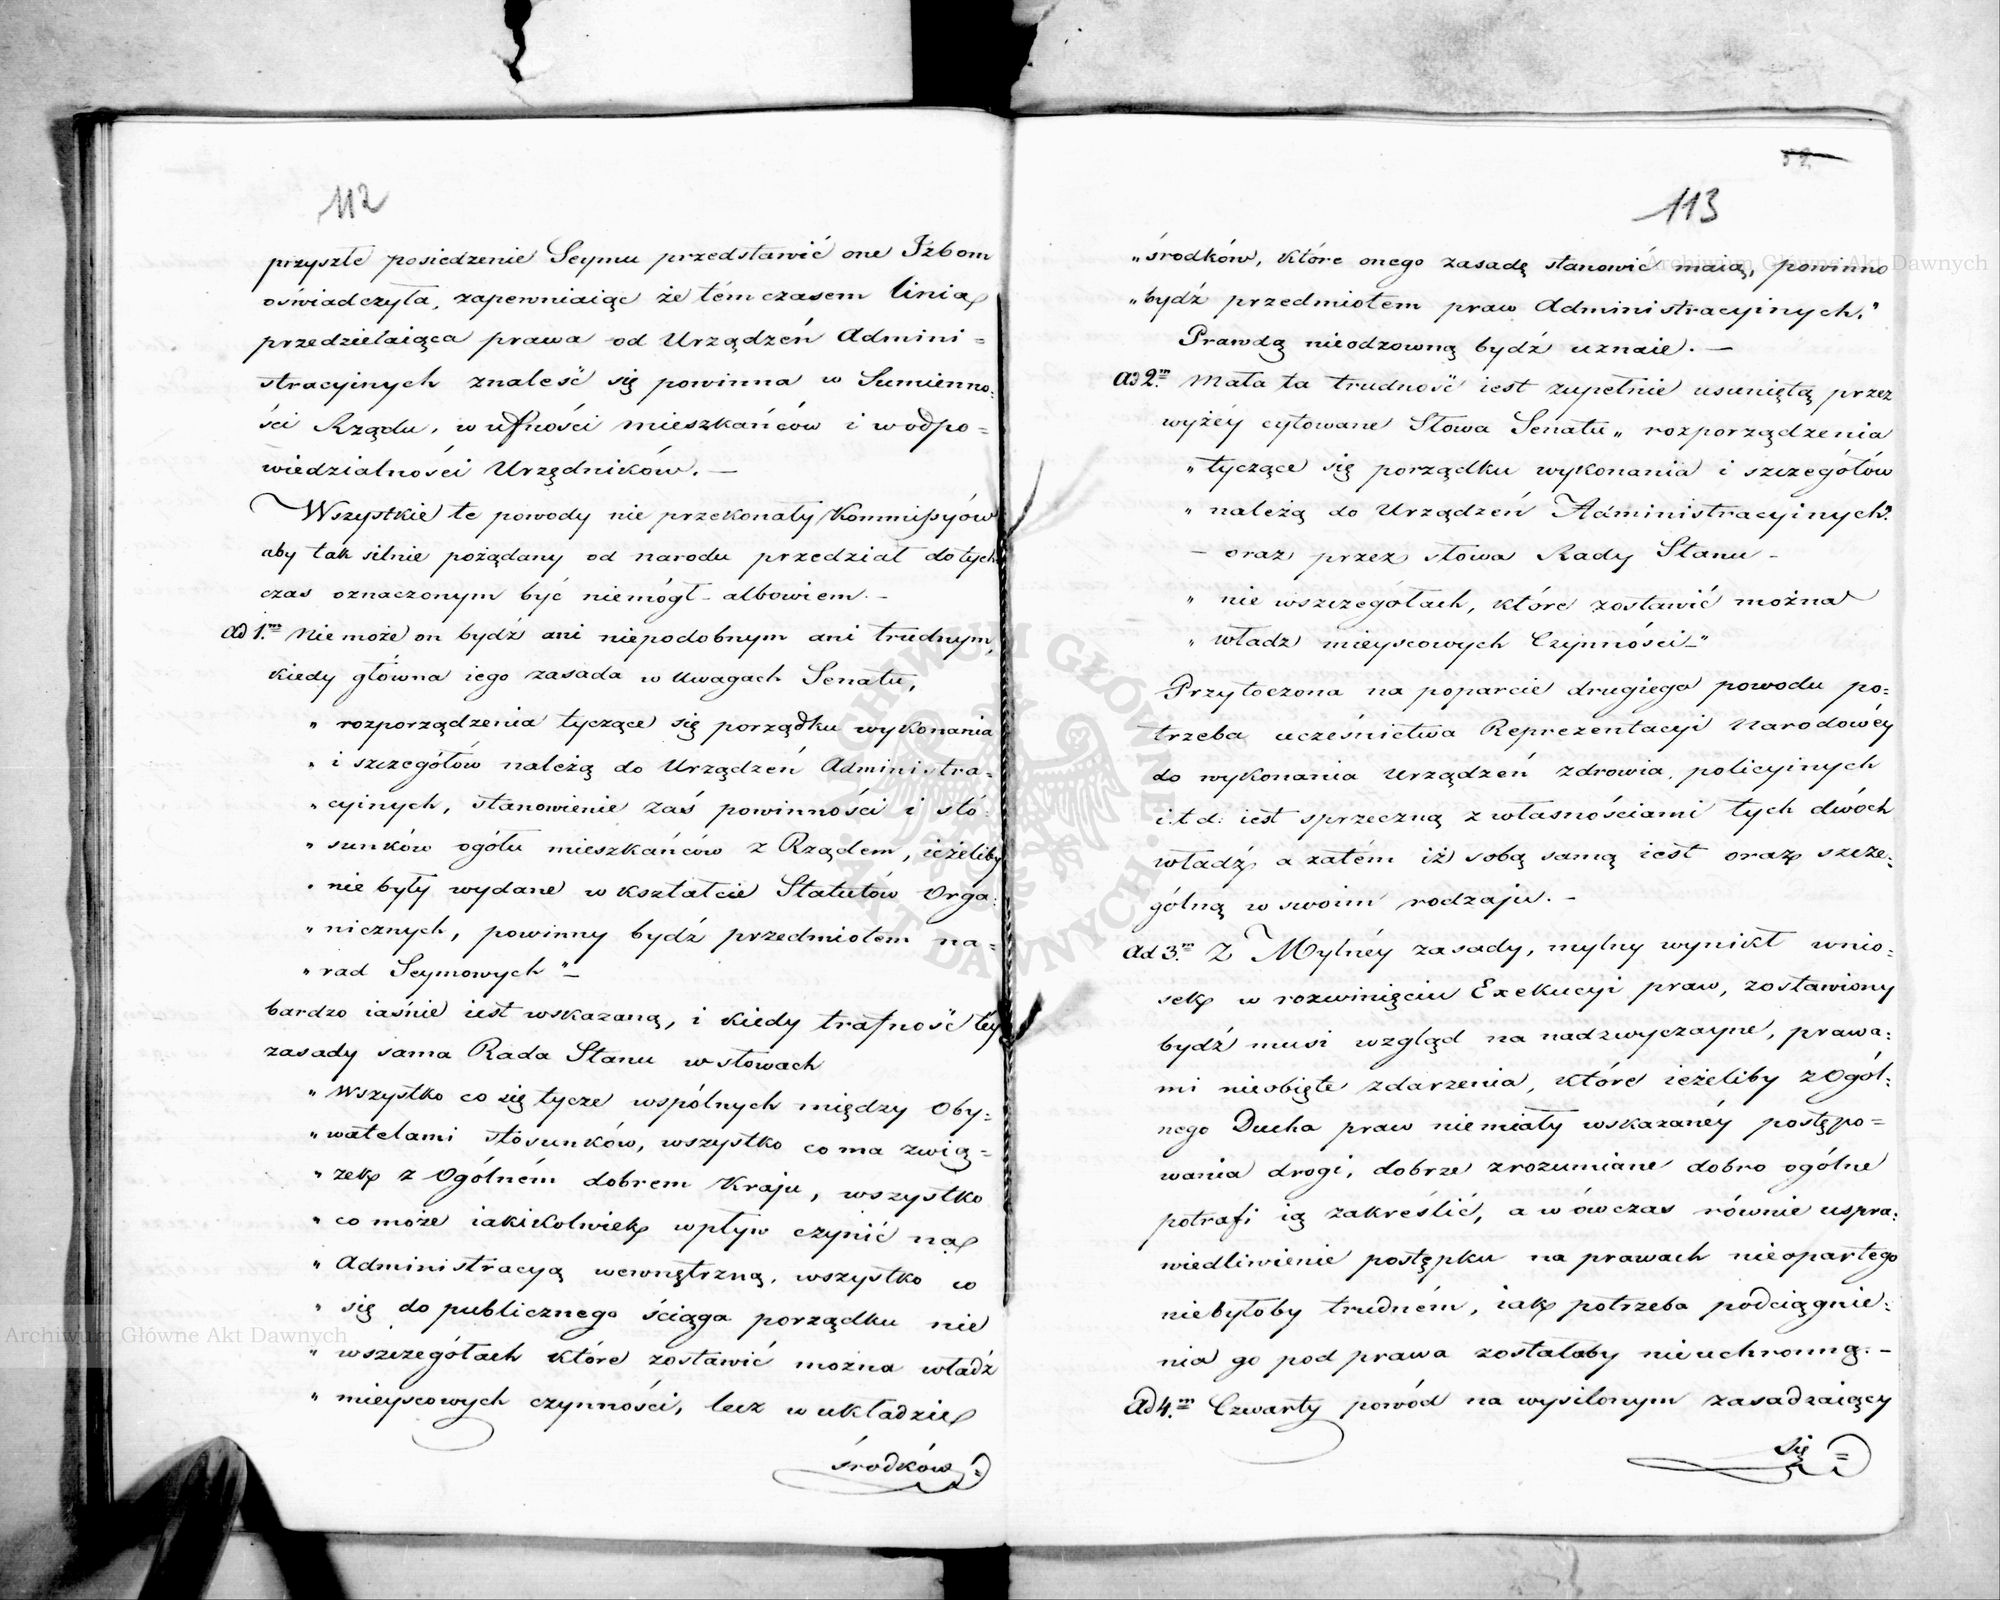 112
przyszłe posiedzenie Seymu przedstawić one Izbom
oświadczyła, zapewniaiąc że tém czasem linia
przedzielaiąca prawa od Urządzeń Admini=
stracyinych znaleść się powinna w Sumienno=
ści Rządu, w ufności mieszkańców i w odpo=
wiedzialności Urzędników. —
Wszystkie te powody nie przekonały Kommissyów
aby tak silnie pożądany od narodu przedział dotych
czas oznaczonym być niemógł - albowiem. -
ad 1.m Nie może on bydź ani niepodobnym ani trudnym,
kiedy główna iego zasada w Uwagach Senatu,
„ rozporządzenia tyczące się porządku wykonania
„ i szczegółów należą do Urządzeń Administra=
„ cyinych, stanowienie zaś powinności i sto=
„ sunków ogółu mieszkańców z Rządem, ieżeliby
„ nie były wydane w kształcie Statutów Orga=
„ nicznych, powinny bydź przedmiotem na=
„ rad Seymowych" —
bardzo iaśnie iest wskazaną, i kiedy trafność téy
zasady sama Rada Stanu w słowach
„ Wszystko co się tycze wspólnych między Oby=
„ watelami stosunków, wszystko co ma zwią=
„ zek z Ogólném dobrem Kraju, wszystko
„ co może iakikolwiek wpływ czynić na
„ Administracyą wewnętrzną, wszystko co
„ się do publicznego ściąga porządku nie
„ wszczegółach które zostawić można władz
„ mieyscowych czynności, lecz w układzie
środków=
58.
113
„ środków, które onego zasadę stanowić maią, powinno
„ bydź przedmiotem praw Administracyinych."
Prawdą nieodzowną bydź uznaie. —
ad 2.m Mała ta trudność iest zupełnie usuniętą przez
wyżéy cytowane Słowa Senatu „ rozporządzenia
„ tyczące się porządku wykonania i szczegółów
„ należą do Urządzeń Administracyinych"
— oraz przez słowa Rady Stanu -
„ nie wszczegółach, które zostawić można
„ władz mieyscowych Czynności —"
Przytoczona na poparcie drugiego powodu po=
trzeba uczéśnictwa Reprezentacyi Narodowéy
do wykonania Urządzeń zdrowia, policyinych
i.t.d. iest sprzeczną z własnościami tych dwóch
władz, a zatém iż sobą samą iest oraz szcze=
gólną w swoim rodzaju. -
ad 3.m Z Mylnéy zasady, mylny wynikł wnio=
sek w rozwinięciu Exekucyi praw, zostawiony
bydź musi wzgląd na nadzwyczayne, prawa=
mi nieobięte zdarzenia, które ieżeliby z Ogól=
nego Ducha praw niemiały wskazanéy postępo=
wania drogi, dobrze zrozumiane dobro ogólne
potrafi ią zakreślić, a w ówczas równie uspra=
wiedliwienie postępku na prawach nieopartego
niebyłoby trudném, iak potrzeba podciągnie=
nia go pod prawa zostałaby nieuchronną. -
Ad 4.m Czwarty powód na wysilonym zasadzaiący
się=
Archiwum Główne Akt Dawnych
Archiwum Główne Akt Dawnych
ARCHIWUM GŁÓWNE AKT DAWNYCH